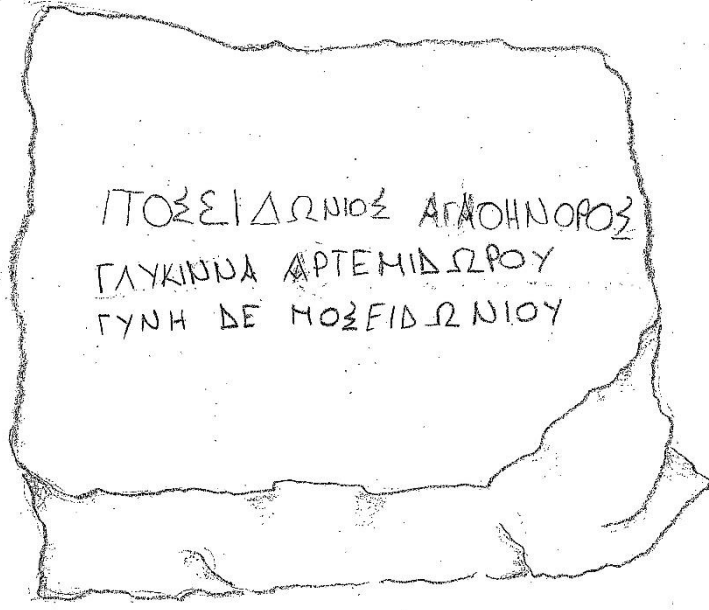 ΠΟΣΕΙΔΩΝΙΟΣ ΑΓΑΘΗΝΟΡΟΣ
ΓΛΥΚΙΝΝΑ ΑΡΤΕΜΙΔΩΡΟΥ
ΓΥΝΗ ΔΕ ΠΟΣΕΙΔΩΝΙΟΥ